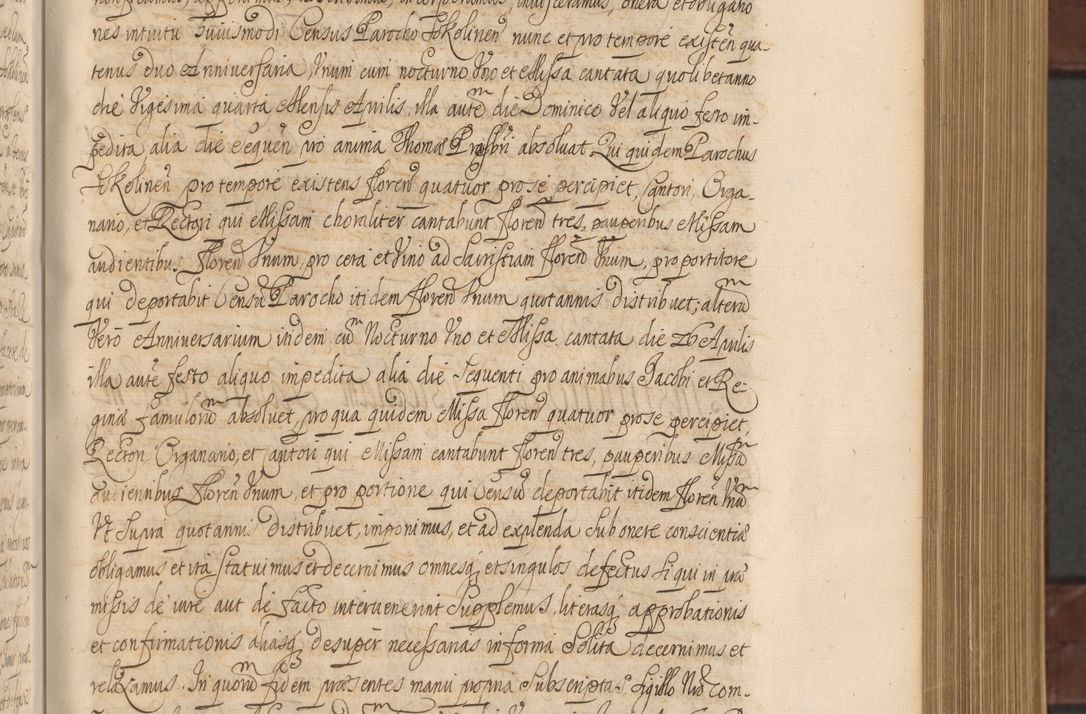 nes intuitu huiusmodi Census Parocho Sokolinen nunc et pro tempore existen qua-
tenus duo Anniversaria, Vnum cum nocturno Vno et Missa cantata quolibet anno
die Vigesima quarta Mensis Aprilis, illa autem die Dominico Vel aliquo festo im-
pedita alia die sequen pro anima Thomæ Prесbri absoluat. Qui quidem Parochus
Sokolinen pro tempore existens floren quatuor pro se percipiet, Cantori, Orga-
nario, et Rectori qui Missam choraliter cantabunt floren tres, pauperibus Missam
audientibus floren Vnum, pro cera et Vino ad Sacristiam floren Vnum, pro portitore
qui deportabit Censu Parocho itidem floren Vnum quotannis distribuet; alterum
Vero Anniversarium itidem cum Nocturno Vno et Missa cantata die 26 Aprilis
illa aute festo aliquo impedita alia die sequenti pro animabus Jacobi et Re-
ginæ famulorum absoluet, pro qua quidem Missa floren quatuor pro se percipiet,
Rectori Organario, et Cantori qui Missam cantabunt floren tres, pauperibus Missam
audientibus floren Vnum, et pro portione qui Censu deportabit itidem floren Vnum
Vt supra quotanni distribuet, imponimus, et ad explenda sub onere conscientiæ
obligamus et ita statuimus et decernimus omnesq et singulos defectus si qui in præ
missis de iure aut de facto intervenerint Supplemus, literasq approbationis
et confirmationis aliasq desuper necessarias in forma Solita decernimus et
relaxamus. In quorum fidem præsentes manu propria Subscriptas sigillo Nro com-